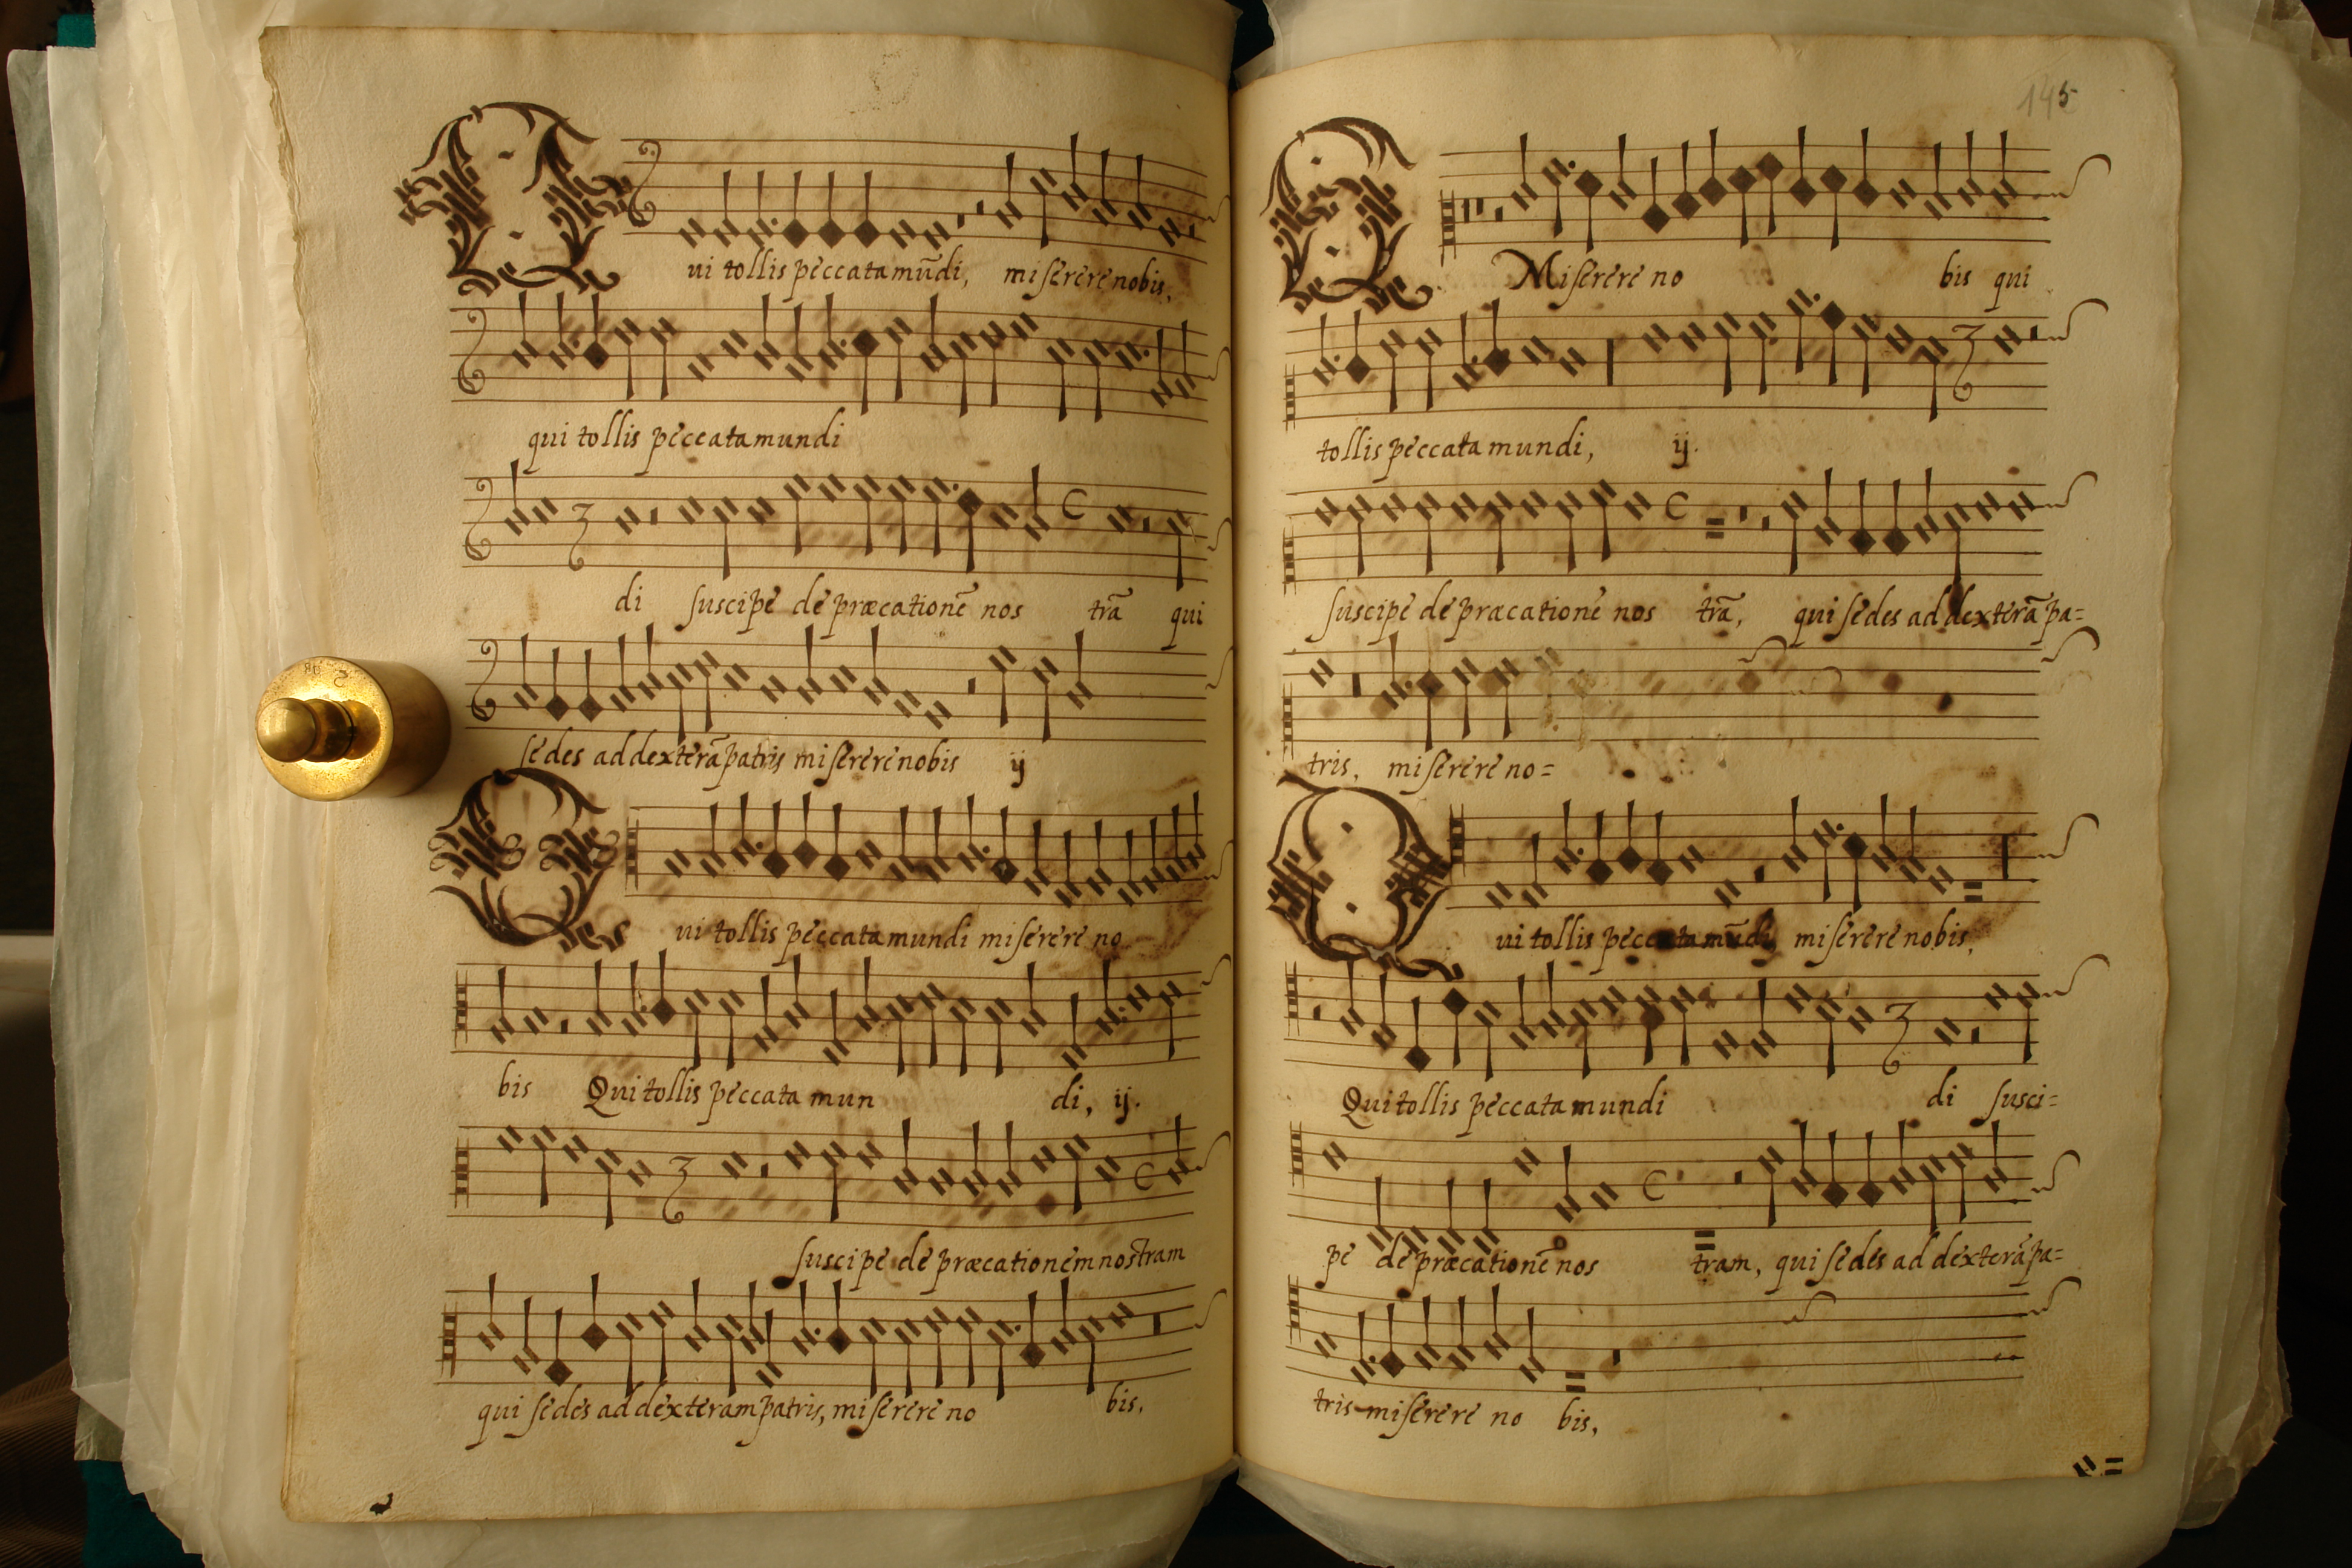 Qui tollis peccata mūdi, miserere nobis,
qui tollis peccata mundi
di suscipe de præcationē nos trā qui
sedes ad dexterā patris miserere nobis ij
Qui tollis peccata mundi miserere no
bis Qui tollis peccata mun di, ij.
suscipe de præcationem nostram
qui sedes ad dexteram patris, miserere no bis,
145
Miserere no bis qui
tollis peccata mundi, ij.
suscipe de præcationē nos trā, qui sedes ad dexterā pa=
tris, miserere no=
Qui tollis peccata mūdi, miserere nobis,
Qui tollis peccata mundi di susci=
pe de præcationē nos tram, qui sedes ad dexterā pa=
tris miserere no bis,